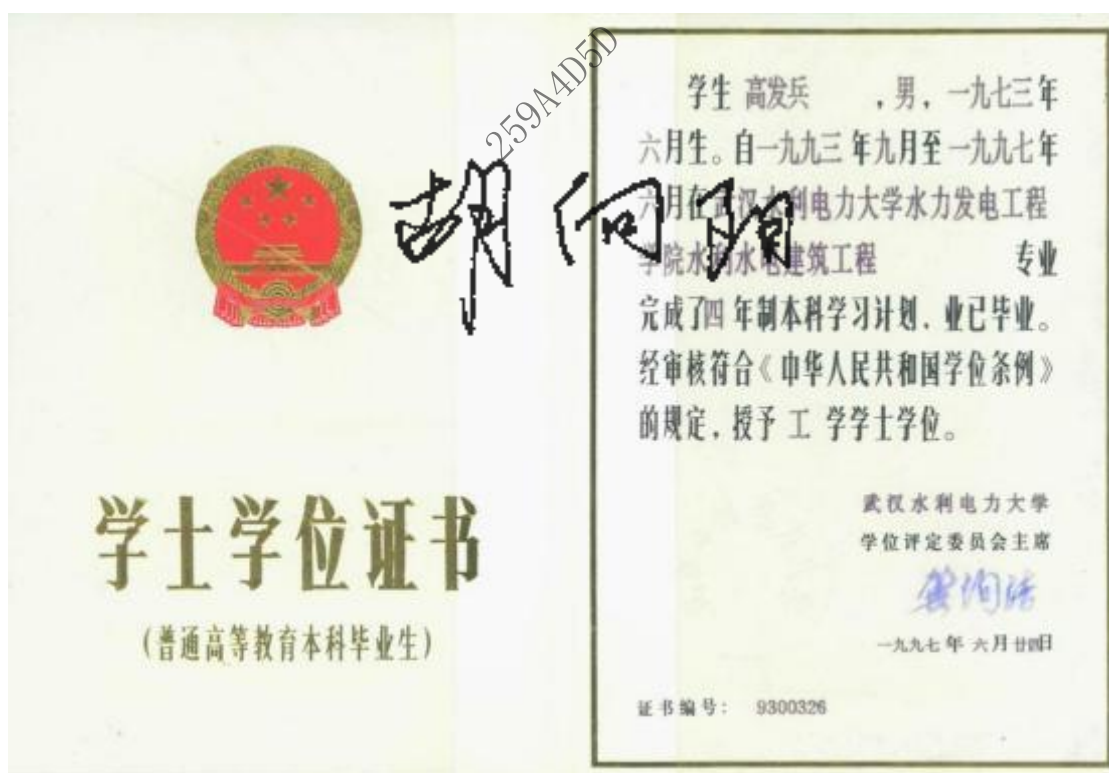 259A4D5D
胡向阳
学士学位证书
(普通高等教育本科毕业生)
学生 高发兵 ,男,一九七三年
六月生。自一九九三年九月至一九九七年
六月在武汉水利电力大学水力发电工程
学院水利水电建筑工程 专业
完成了四年制本科学习计划,业已毕业。
经审核符合《中华人民共和国学位条例》
的规定,授予 工 学学士学位。
武汉水利电力大学
学位评定委员会主席
一九九七年 六月廿四日
证书编号: 9300326